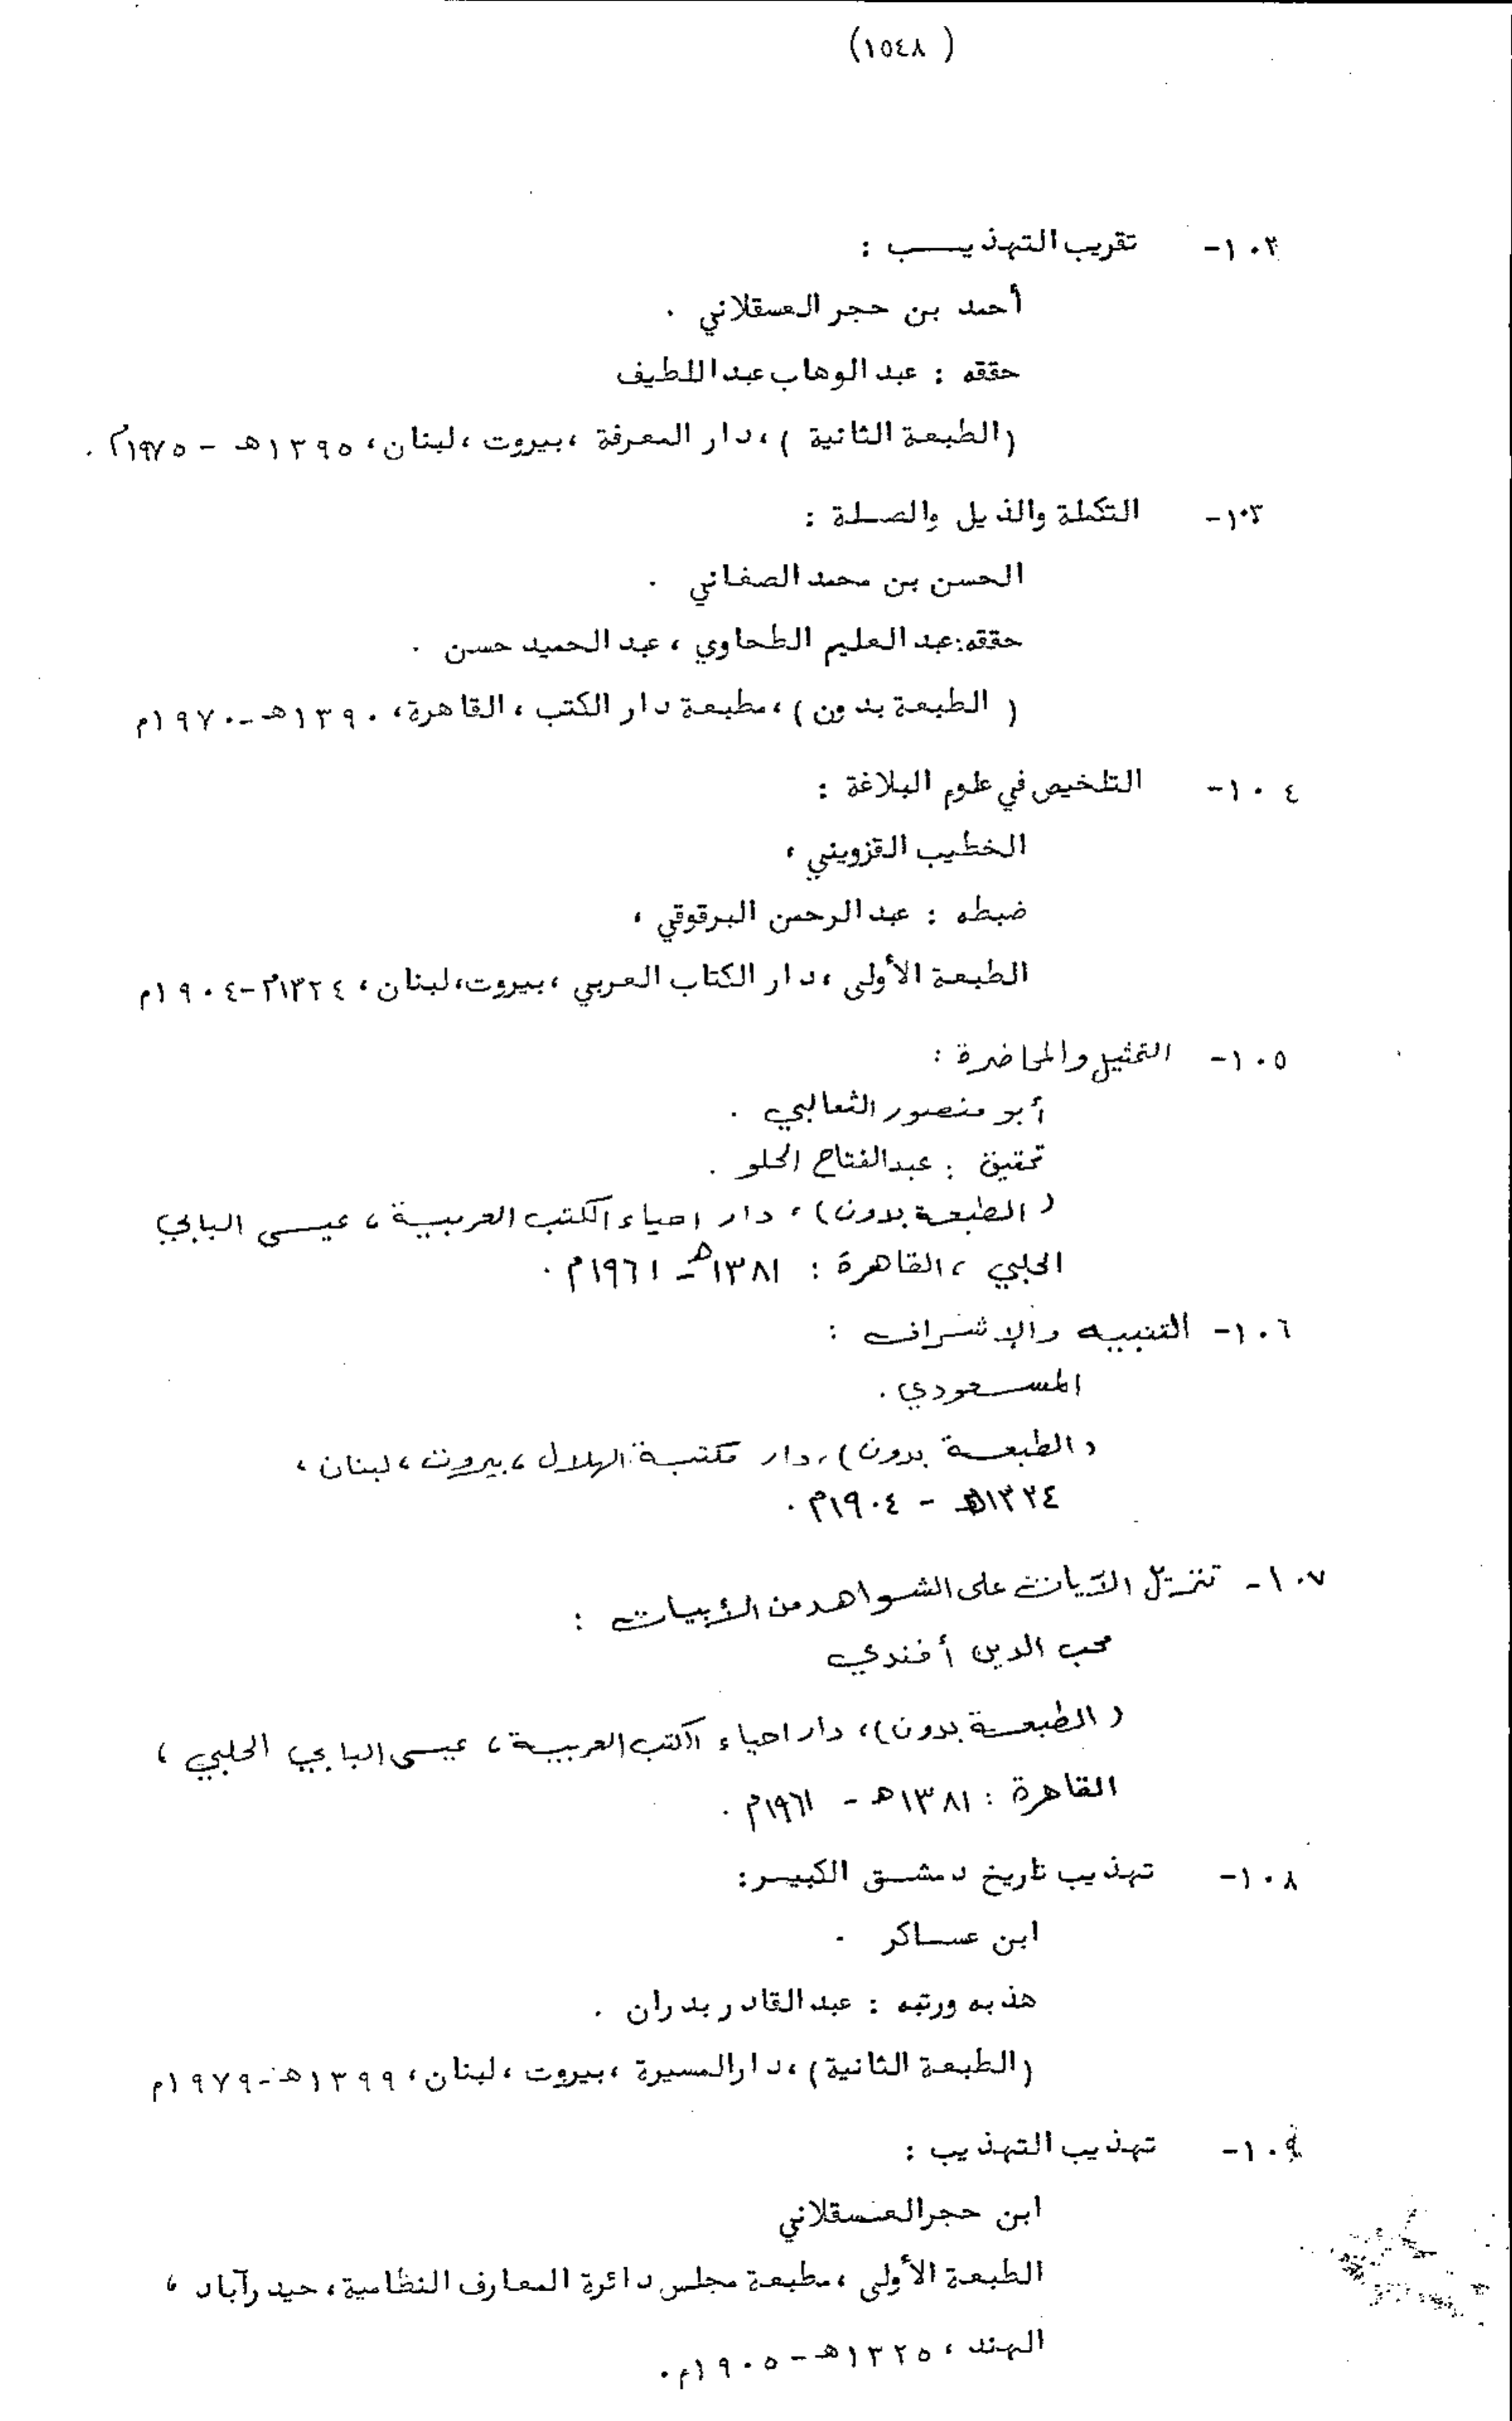 (١٥٤٨ )
١٠٢- تقريب التهذيـــب :
أحمد بن حجر العسقلاني .
حققه : عبد الوهاب عبد اللطيف
(الطبعة الثانية ) ، دار المعرفة ، بيروت ، لبنان ، ١٣٩٥هـ - ١٩٧٥م .
١٠٣- التكملة والذيل والصـلـة :
الحسن بن محمد الصغاني .
حققه: عبد العليم الطحاوي ، عبد الحميد حسن .
( الطبعة بدون ) ، مطبعة دار الكتب ، القاهرة ، ١٣٩٠هـ-١٩٧٠م
١٠٤- التلخيص في علوم البلاغة :
الخطيب القزويني ،
ضبطه : عبد الرحمن البرقوقي ،
الطبعة الأولى ، دار الكتاب العربي ، بيروت ، لبنان ، ١٣٢٤-١٩٠٤م
١٠٥- التمثيل والمحاضرة :
أبو منصور الثعالبي .
تحقيق : عبدالفتاح الحلو .
( الطبعة بدون ) ، دار احياء الكتب العربيـة ، عيسـى البابي
الحلبي ، القاهرة : ١٣٨١هـ - ١٩٦١م .
١٠٦- التنبيه والإشـراف :
المسـعودي .
( الطبعـة بدون ) ، دار مكتبـة الهلال ، بيروت ، لبنان ،
١٣٢٤هـ - ١٩٠٤م .
١٠٧- تنزيل الآيات على الشـواهد من الأبيات :
محب الدين أفندي
( الطبعـة بدون ) ، دار احياء الكتب العربيـة ، عيسى البابي الحلبي ،
القاهرة : ١٣٨١هـ - ١٩٦١م .
١٠٨- تهذيب تاريخ دمشـق الكبيـر:
ابن عسـاكر .
هذبه ورتبه : عبد القادر بدران .
(الطبعة الثانية ) ، دار المسيرة ، بيروت ، لبنان ، ١٣٩٩هـ-١٩٧٩م
١٠٩- تهذيب التهذيب :
ابن حجر العسقلاني
الطبعة الأولى ، مطبعة مجلس دائرة المعارف النظامية ، حيدرآباد ،
الهند ، ١٣٢٥هـ-١٩٠٥م .